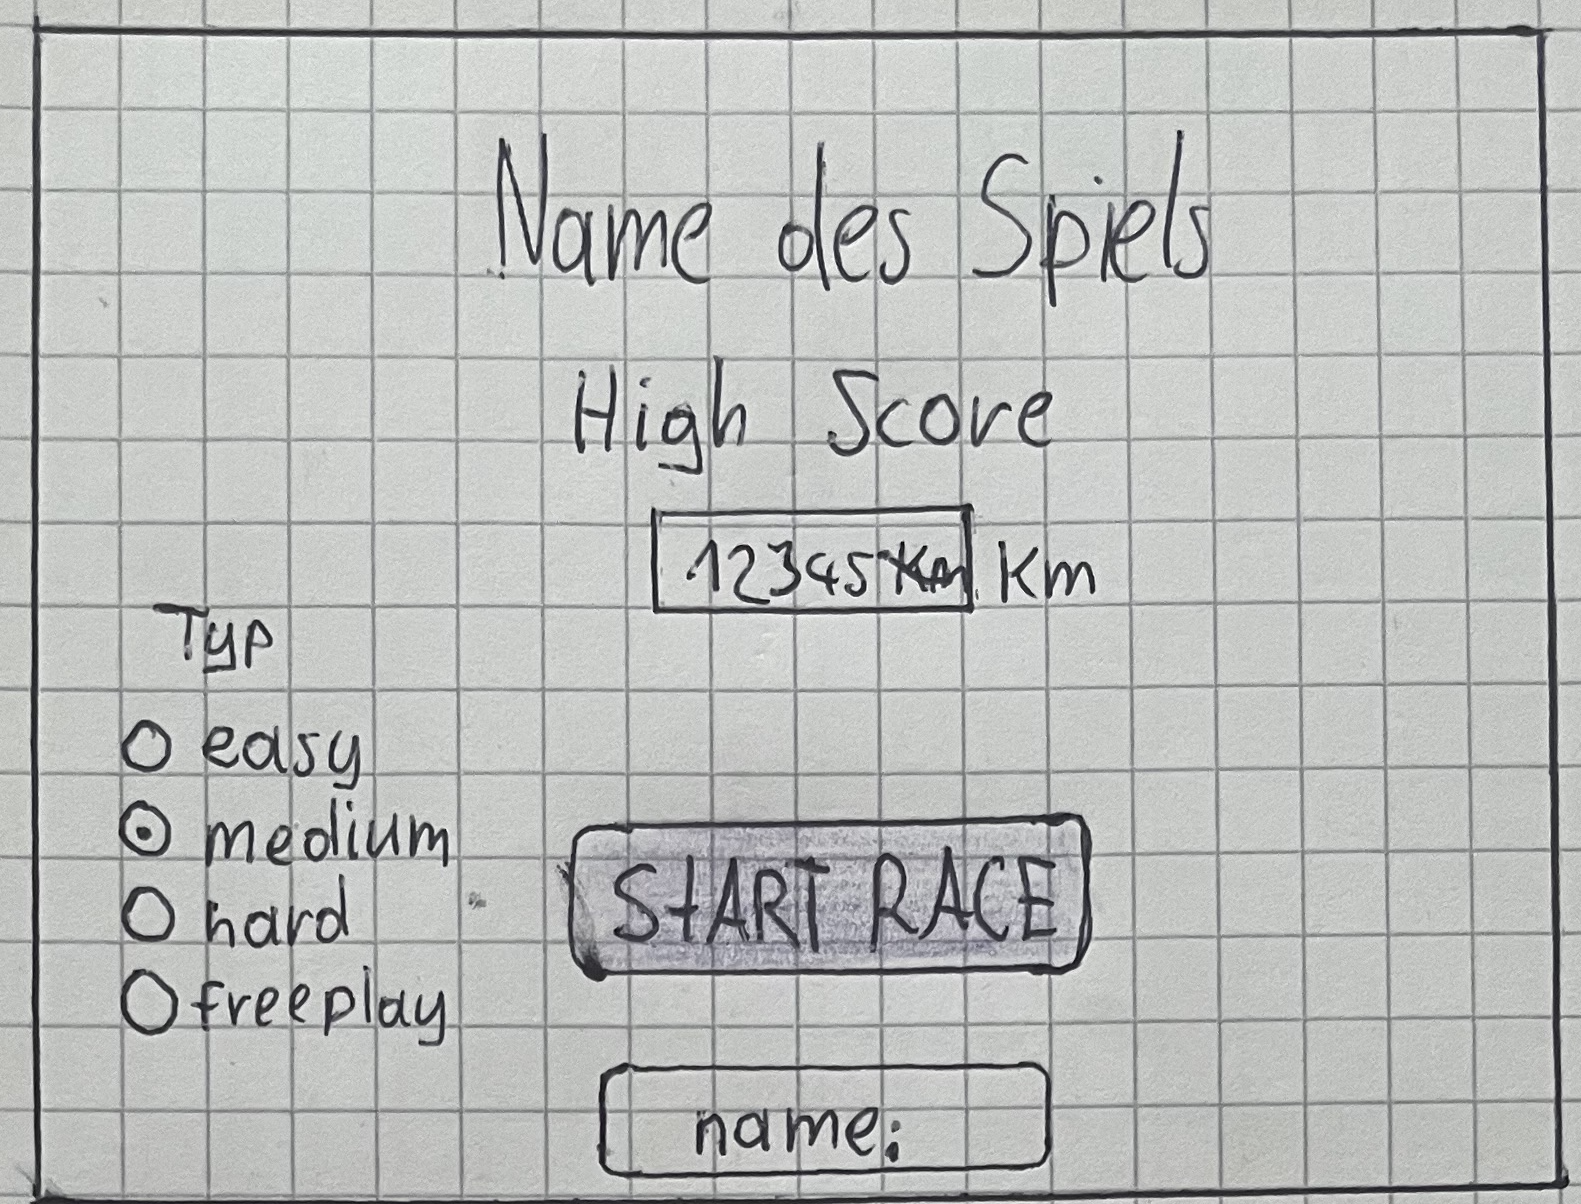 Name des Spiels
High Score
12345 Km Km
Typ
easy
medium
hard
freeplay
START RACE
name: